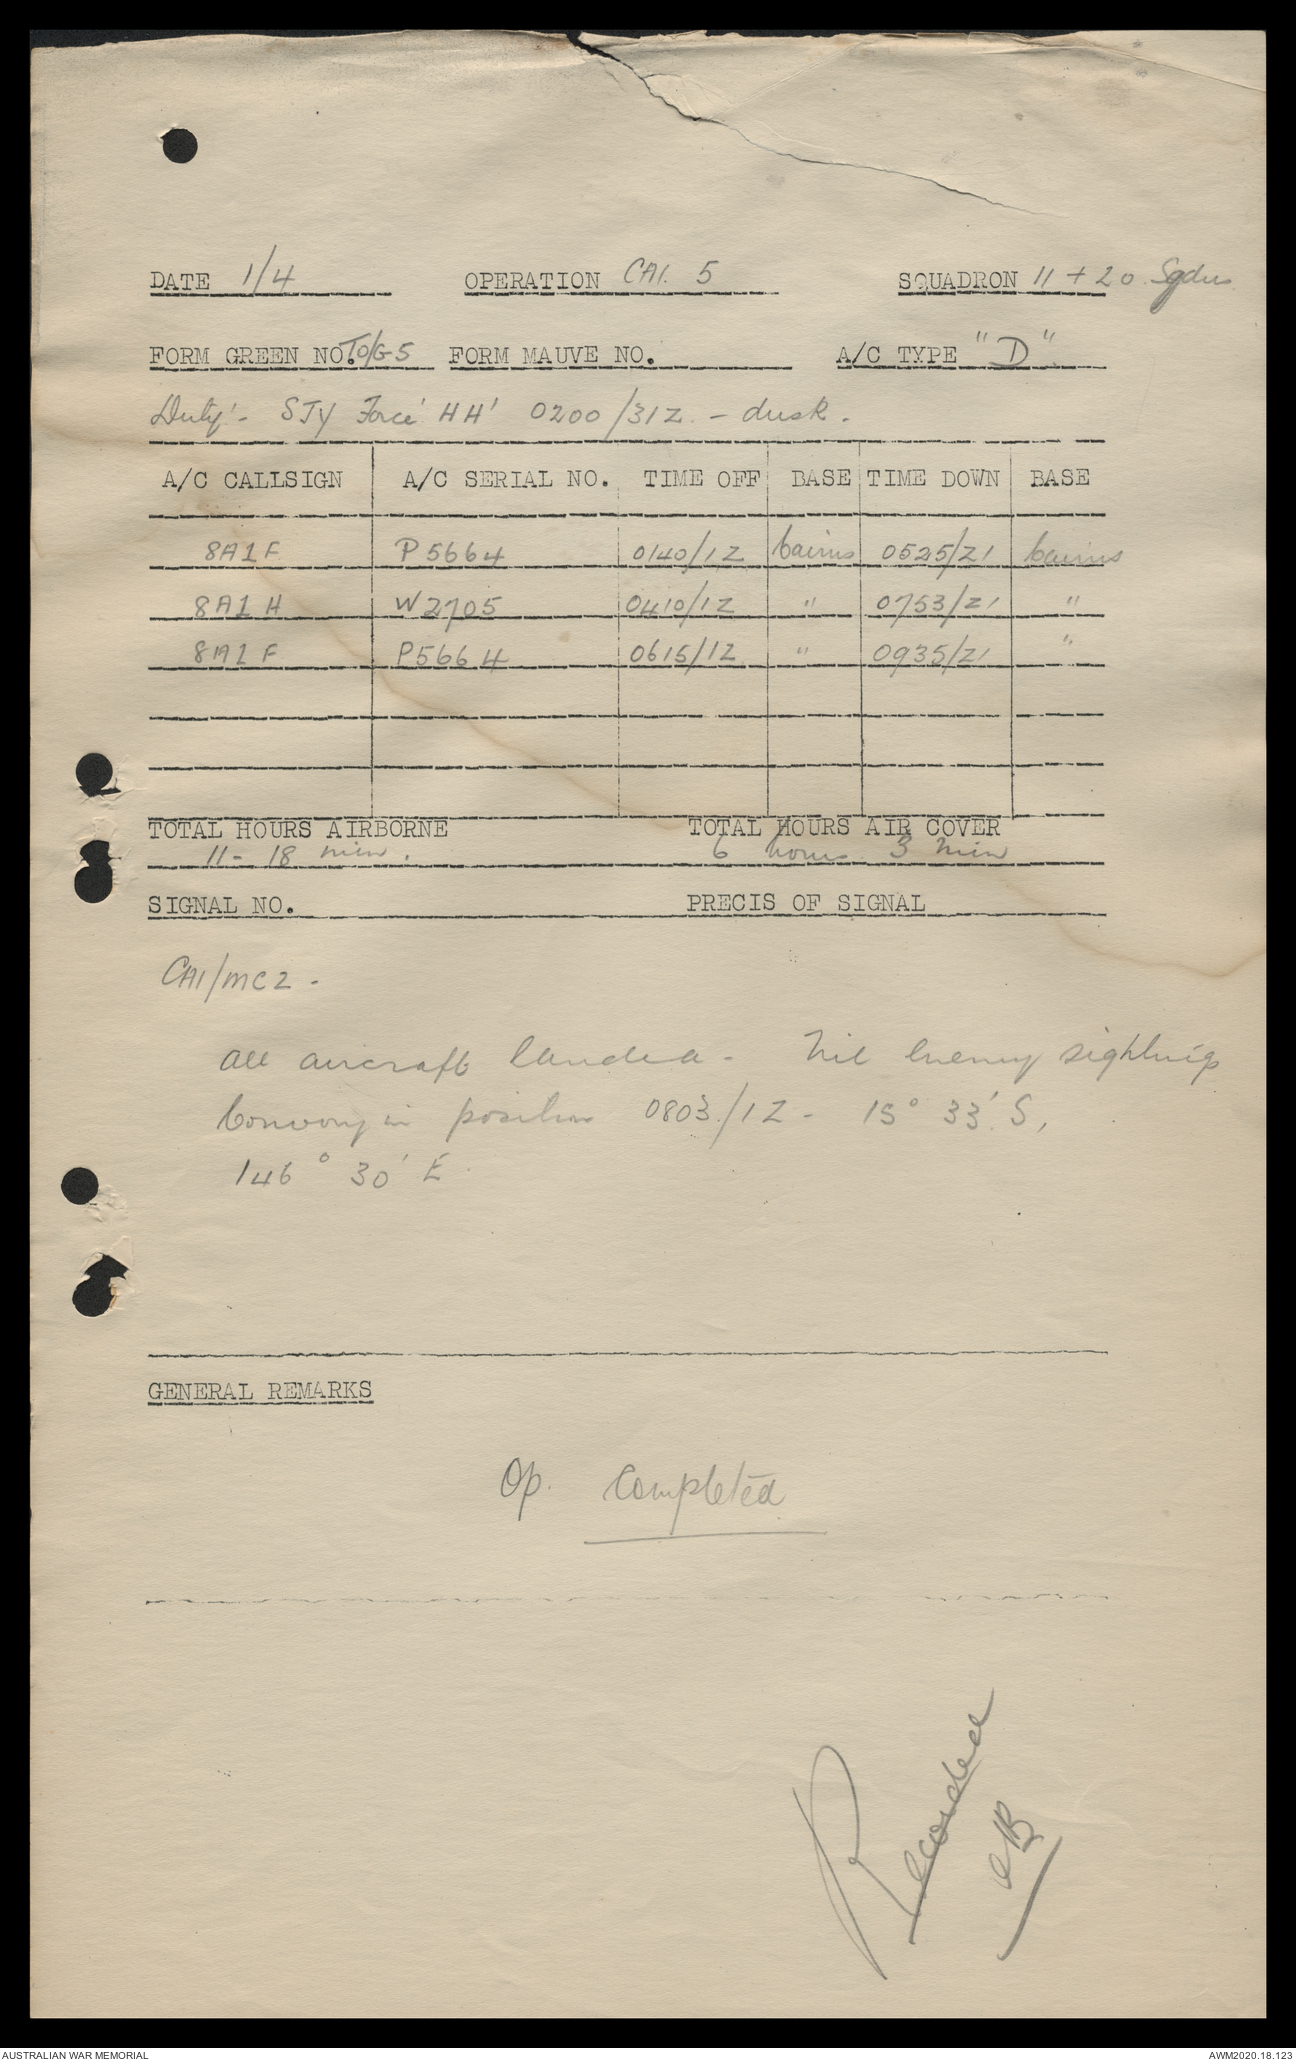 DATE 1/4 OPERATION CAI. 5 SQUADRON 11 + 20 Sqdns
FORM GREEN NO. TO/G5 FORM MAUVE NO. A/C TYPE "D"
Duty:- STY Force 'HH' 0200/31Z. - dusk.
A/C CALLSIGN A/C SERIAL NO. TIME OFF BASE TIME DOWN BASE
8A1F P5664 0140/1Z Cairns 0525/Z1 Cairns
8A1 H W2705 0410/1Z " 0753/Z1 "
8A1 F P5664 0615/1Z " 0935/Z1 "
TOTAL HOURS AIRBORNE TOTAL HOURS AIR COVER
11 - 18 min. 6 hours 3 min
SIGNAL NO. PRECIS OF SIGNAL
CAI/MC2 -
All aircraft landed - Nil enemy sightings
Convoy in position 0803/1Z - 15° 33' S,
146° 30' E
GENERAL REMARKS
Op. Completed
Recorded
AUSTRALIAN WAR MEMORIAL AWM2020.18.123